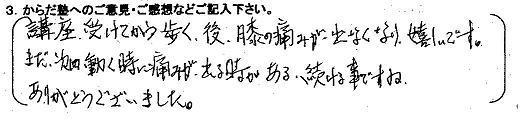 3. からだ塾へのご意見・ご感想などご記入下さい。
講座、受けてから歩く、後、膝の痛みが出なくなり、嬉しいです。
まだ、次の動く時に痛みが、出る時がある、続ける事ですね
ありがとうございました。